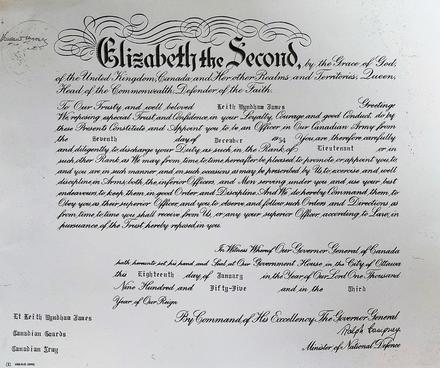 Elizabeth the Second, by the Grace of God,
of the United Kingdom, Canada and Her other Realms and Territories, Queen,
Head of the Commonwealth, Defender of the Faith.
To Our Trusty and well beloved Keith Wyndham James Greeting:
We reposing especial Trust and Confidence in your Loyalty, Courage and good Conduct, do by
these Presents Constitute and Appoint you to be an Officer in Our Canadian Army from
the Seventh day of December 1954 You are therefore carefully
and diligently to discharge your Duty as such, in the Rank of Lieutenant or in
such other Rank as We may from time to time hereafter be pleased to promote or appoint you to,
and you are in such manner and on such occasions as may be prescribed by Us to exercise and well
discipline in Arms, both the inferior Officers and Men serving under you and use your best
endeavours to keep them in good Order and Discipline. And We do hereby Command them to
Obey you as their superior Officer, and you to observe and follow such Orders and Directions as
from time to time you shall receive from Us, or any your superior Officer, according to Law, in
pursuance of the Trust hereby reposed in you.
In Witness Whereof Our Governor General of Canada
hath hereunto set his hand and Seal at Our Government House in the City of Ottawa
this Eighteenth day of January in the Year of Our Lord One Thousand
Nine Hundred and Fifty-Five and in the Third
Year of Our Reign
By Command of His Excellency The Governor General
Ralph Campney
Minister of National Defence
Lt Keith Wyndham James
Canadian Guards
Canadian Army